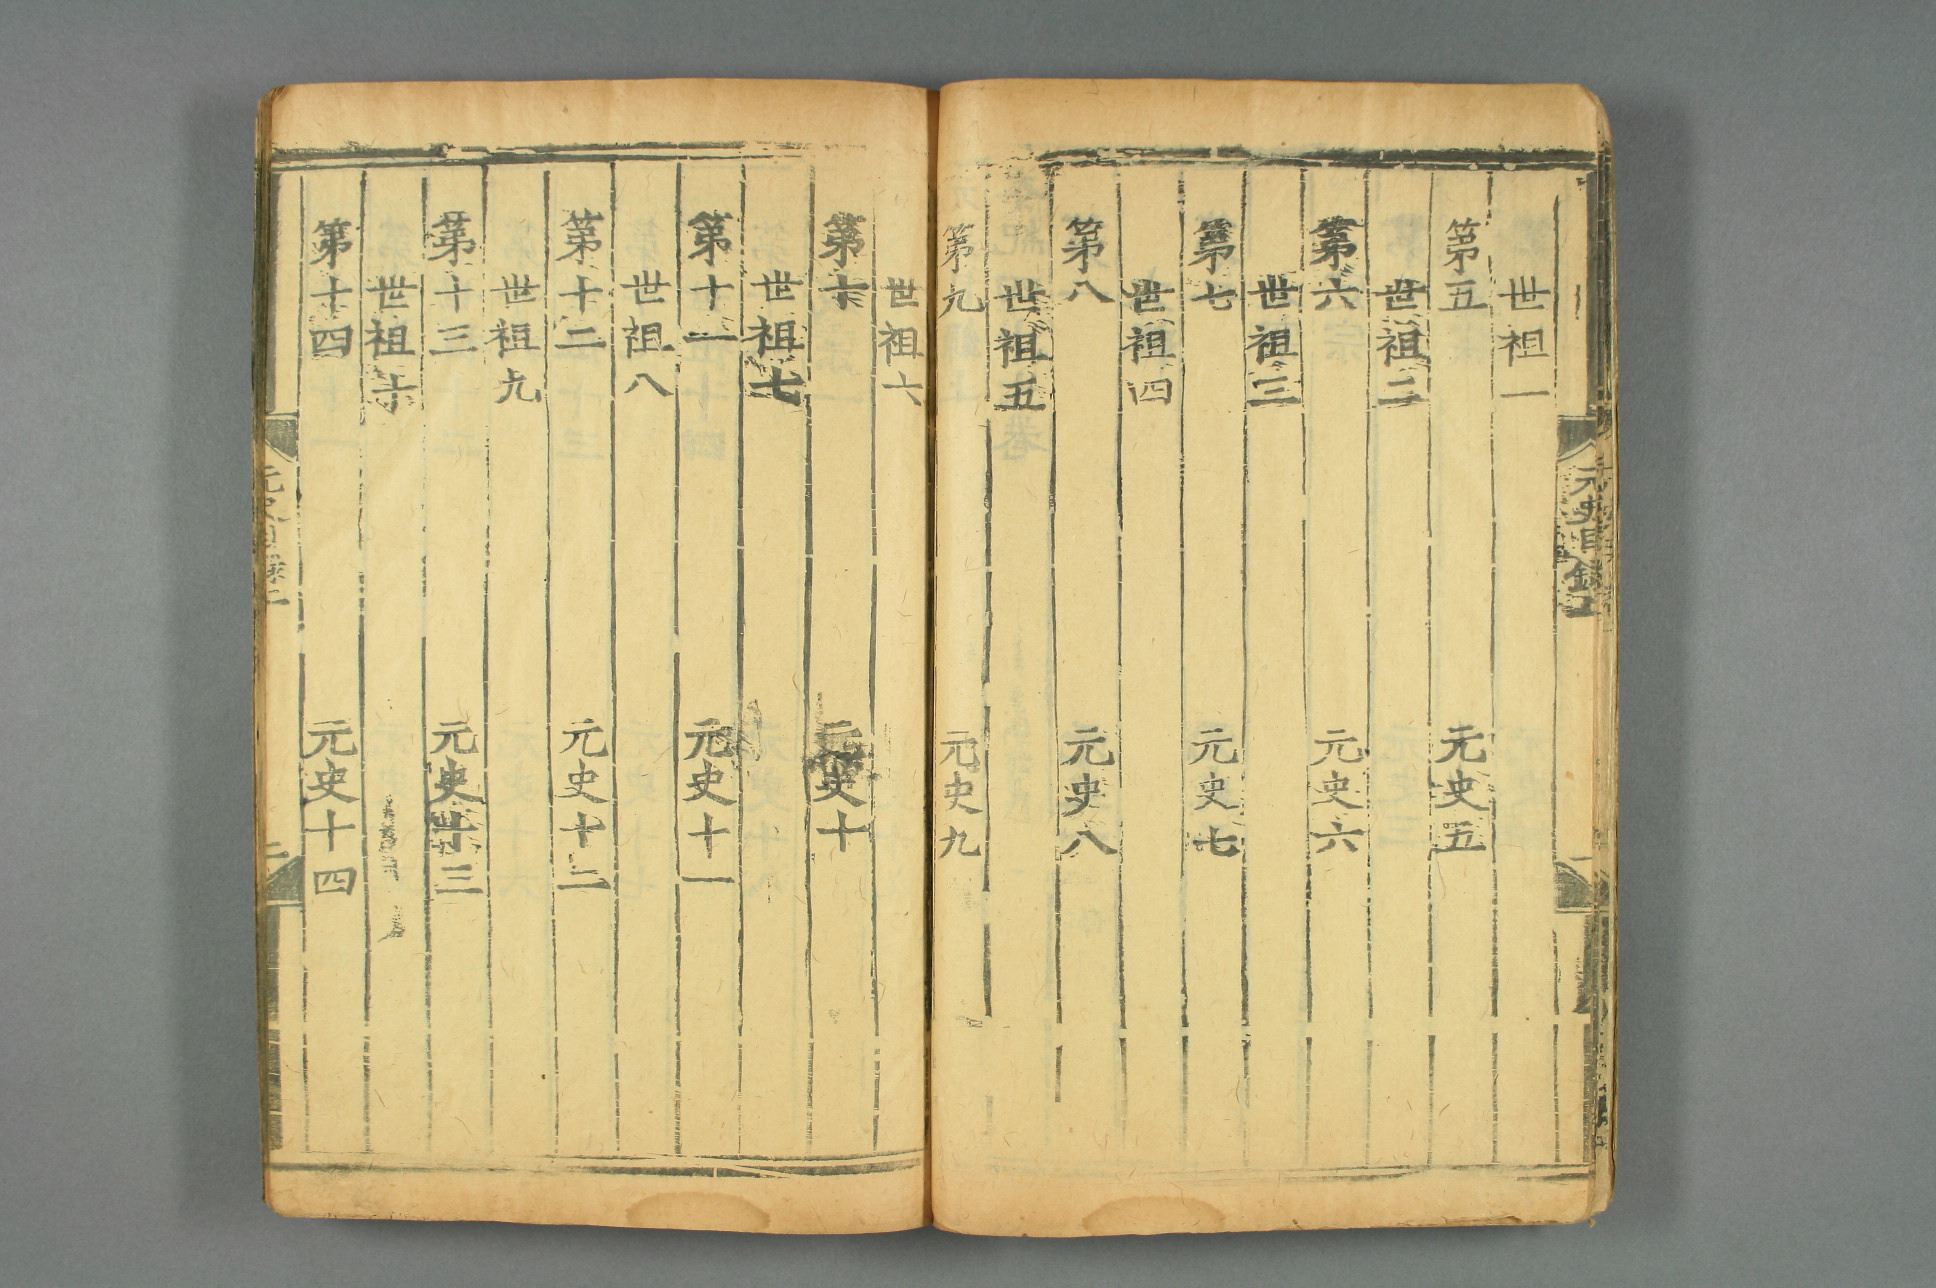 世祖一
第五 元史五
世祖二
第六 元史六
世祖三
第七 元史七
世祖四
第八 元史八
世祖五
第九 元史九
世祖六
第十 元史十
世祖七
第十一 元史十一
世祖八
第十二 元史十二
世祖九
第十三 元史十三
世祖十
第十四 元史十四
元史目錄二
二